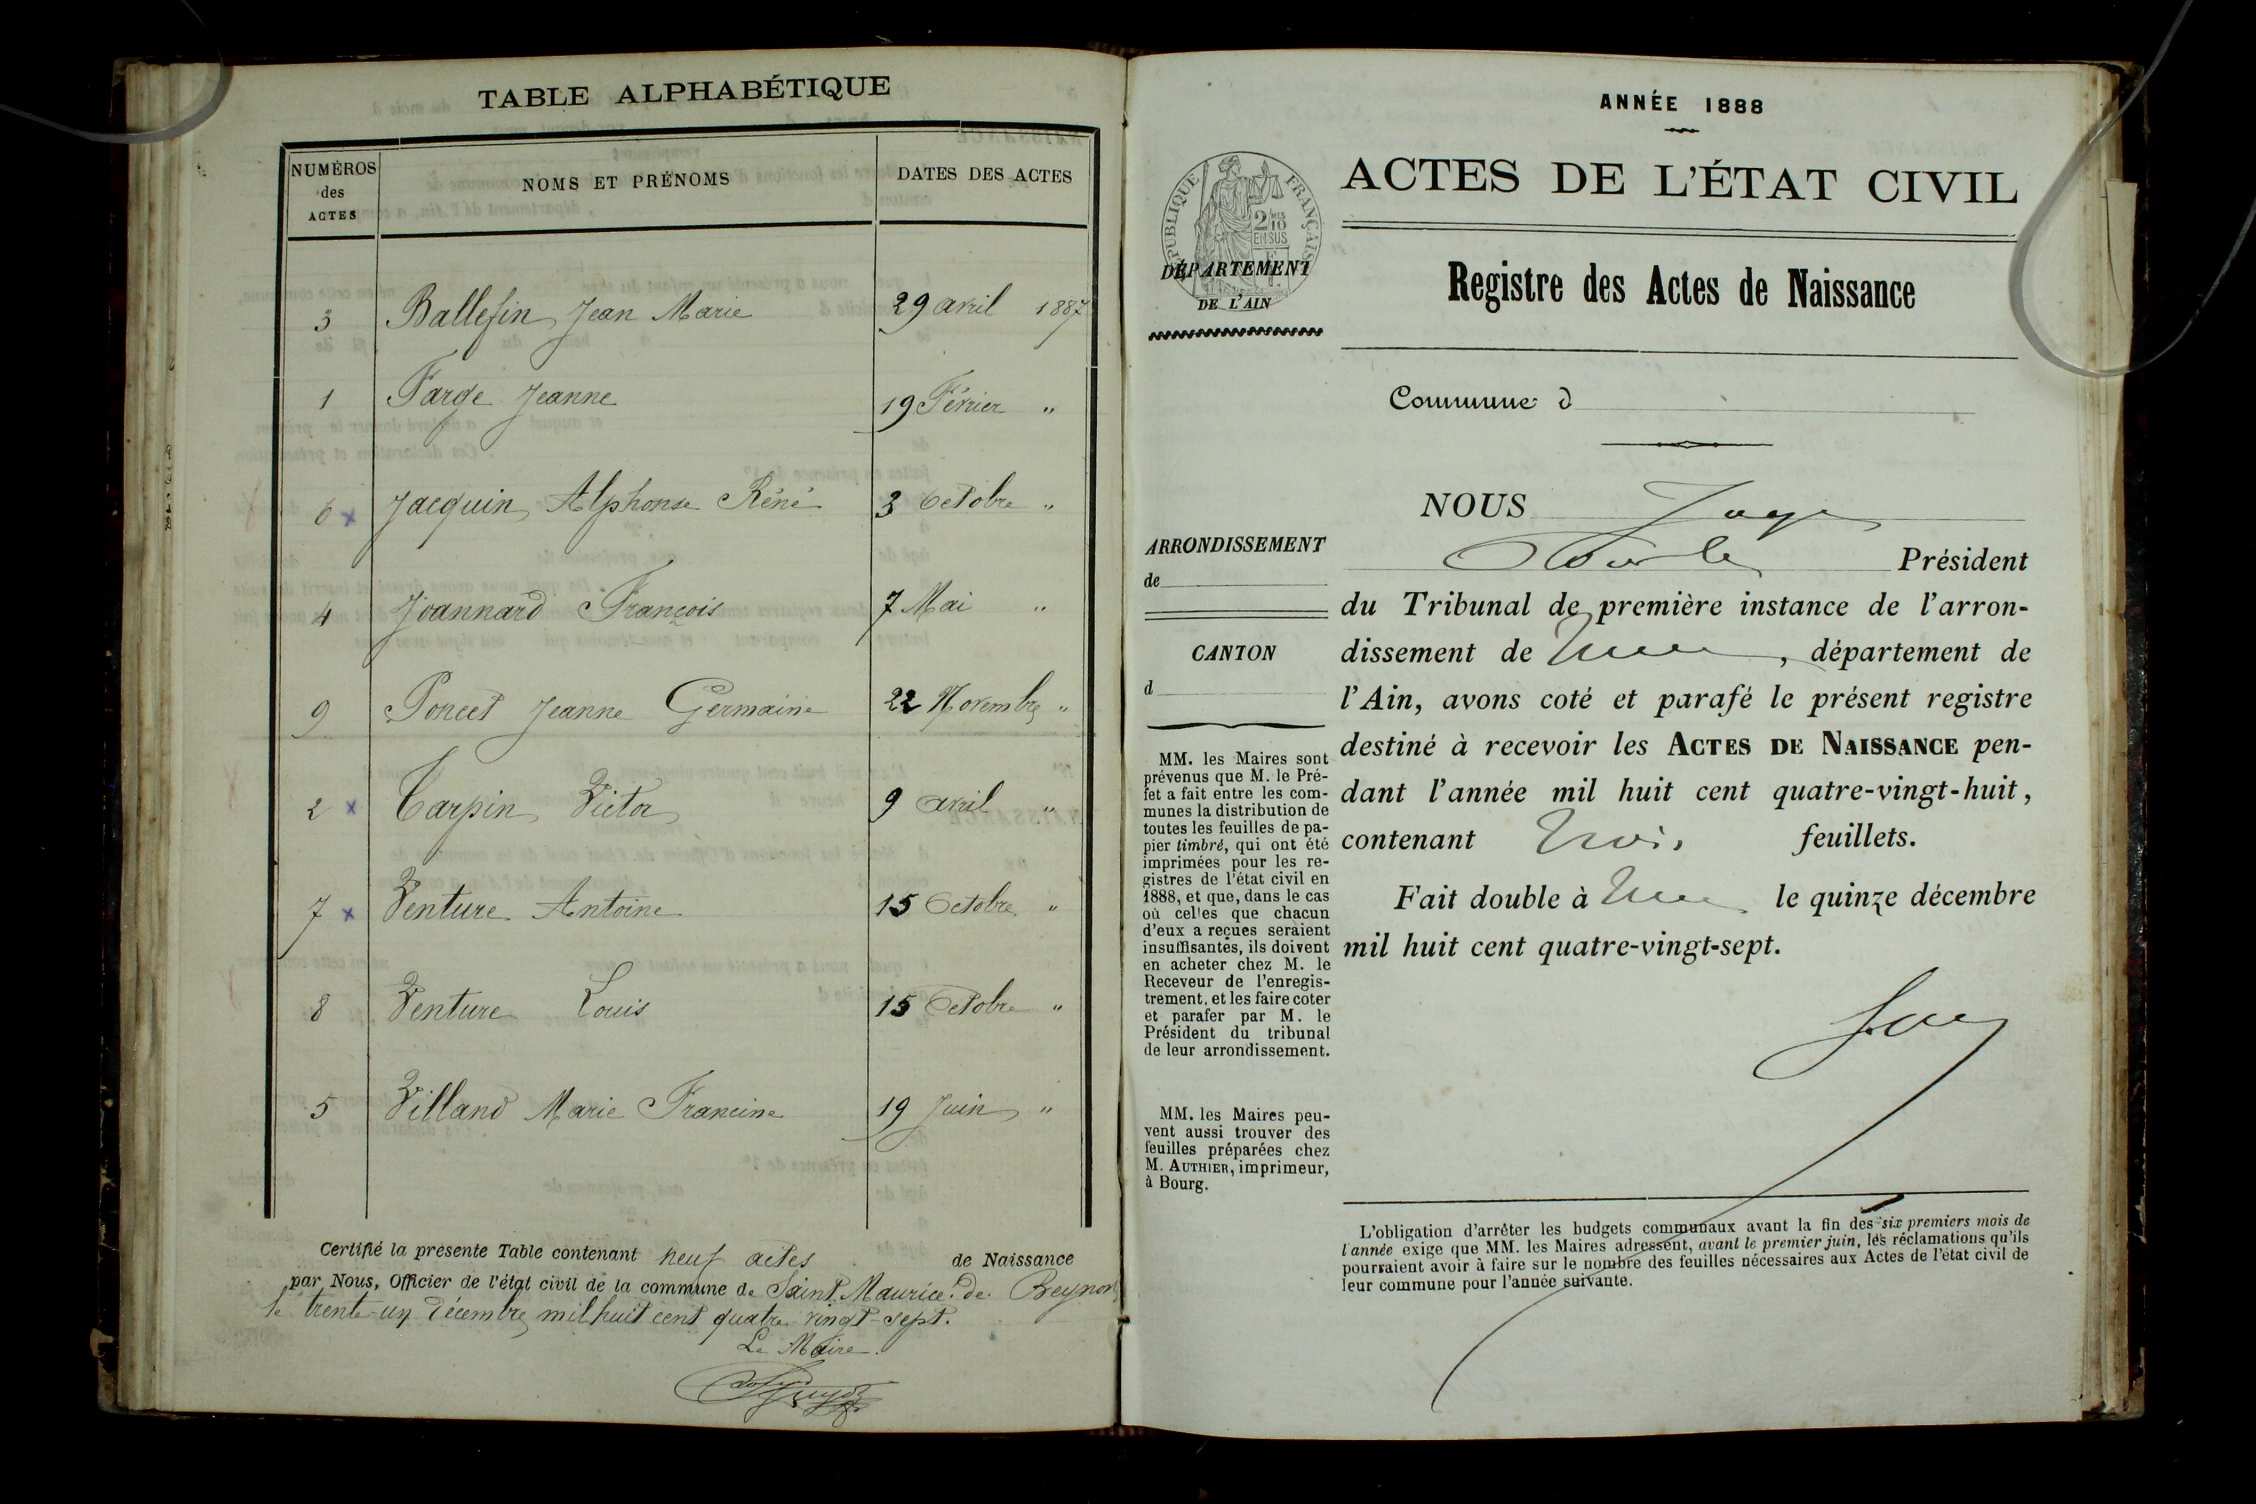 TABLE ALPHABÉTIQUE
NUMÉROS des ACTES NOMS ET PRÉNOMS DATES DES ACTES
3 Ballefin Jean Marie 29 avril 1887
1 Farge Jeanne 19 Février "
6 x Jacquin Alphonse Réné 3 Octobre "
4 Joannard François 7 Mai "
9 Poncet Jeanne Germaine 22 Novembre "
2 x Carpin Victor 9 avril "
7 x Venture Antoine 15 Octobre "
8 Venture Louis 15 Octobre "
5 Villand Marie Francine 19 Juin "
Certifié la presente Table contenant neuf actes de Naissance
par Nous, Officier de l'état civil de la commune de Saint Maurice de Beynost
le trente-un Décembre mil huit cent quatre vingt-sept.
Le Maire.
ANNÉE 1888
ACTES DE L'ÉTAT CIVIL
RÉPUBLIQUE FRANÇAISE
2/10
EN SUS
DÉPARTEMENT
DE L'AIN
Registre des Actes de Naissance
Commune d
NOUS
Président
du Tribunal de première instance de l'arron-
dissement de , département de
l'Ain, avons coté et parafé le présent registre
destiné à recevoir les ACTES DE NAISSANCE pen-
dant l'année mil huit cent quatre-vingt-huit,
contenant trois feuillets.
Fait double à le quinze décembre
mil huit cent quatre-vingt-sept.
ARRONDISSEMENT
de
CANTON
d
MM. les Maires sont
prévenus que M. le Pré-
fet a fait entre les com-
munes la distribution de
toutes les feuilles de pa-
pier timbré, qui ont été
imprimées pour les re-
gistres de l'état civil en
1888, et que, dans le cas
où celles que chacun
d'eux a reçues seraient
insuffisantes, ils doivent
en acheter chez M. le
Receveur de l'enregis-
trement, et les faire coter
et parafer par M. le
Président du tribunal
de leur arrondissement.
MM. les Maires peu-
vent aussi trouver des
feuilles préparées chez
M. AUTHIER, imprimeur,
à Bourg.
L'obligation d'arrêter les budgets communaux avant la fin des six premiers mois de
l'année exige que MM. les Maires adressent, avant le premier juin, les réclamations qu'ils
pourraient avoir à faire sur le nombre des feuilles nécessaires aux Actes de l'état civil de
leur commune pour l'année suivante.